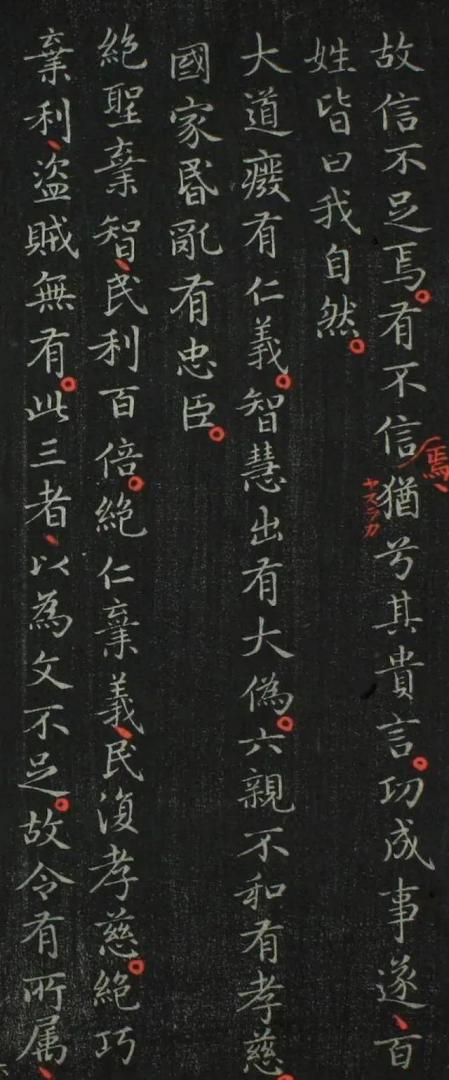 故信不足焉。有不信猶兮其貴言。功成事遂、百
焉、
ヤスラカ
姓皆曰我自然。
大道癈有仁義。智慧出有大偽。六親不和有孝慈、
國家昏亂有忠臣。
絶聖棄智、民利百倍。絶仁棄義、民復孝慈。絶巧
棄利、盗賊無有。此三者、以為文不足。故令有所属、